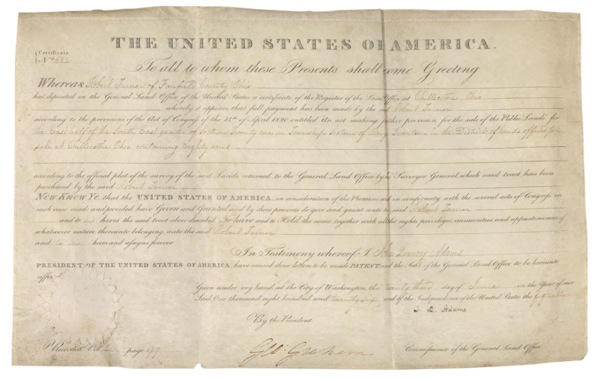 THE UNITED STATES OF AMERICA.
Certificate
To all to whom these Presents shall come Greeting
Whereas Robert Turner of Fairfield County Ohio
has deposited in the General Land Office of the United States a certificate of the Register of the Land Office at Chillicothe Ohio
whereby it appears that full payment has been made by the said Robert Turner
according to the provisions of the Act of Congress of the 24th of April 1820 entitled An act making further provision for the sale of the Public Lands for
the East half of the South East quarter of Section in Township of Range in the District of Lands offered for
sale at Chillicothe Ohio containing eighty acres
according to the official plat of the survey of the said Lands returned to the General Land Office by the Surveyor General which said tract has been
purchased by the said Robert Turner
NOW KNOW YE that the UNITED STATES OF AMERICA, in consideration of the Premises and in conformity with the several acts of Congress in
such case made and provided have Given and Granted and by these presents do give and grant unto the said Robert Turner
and to his heirs the said tract above described To have and to Hold the same together with all the rights privileges immunities and appurtenances of
whatsoever nature thereunto belonging unto the said Robert Turner
and to his heirs and assigns forever
In Testimony whereof I John Quincy Adams
PRESIDENT OF THE UNITED STATES OF AMERICA, have caused these Letters to be made PATENT and the Seal of the General Land Office to be hereunto
affixed
Given under my hand at the City of Washington the day of June in the Year of our
Lord One thousand eight hundred and twenty six and of the Independence of the United States the fiftieth
J. Q. Adams
By the President
Geo: Graham Commissioner of the General Land Office
Recorded Vol page